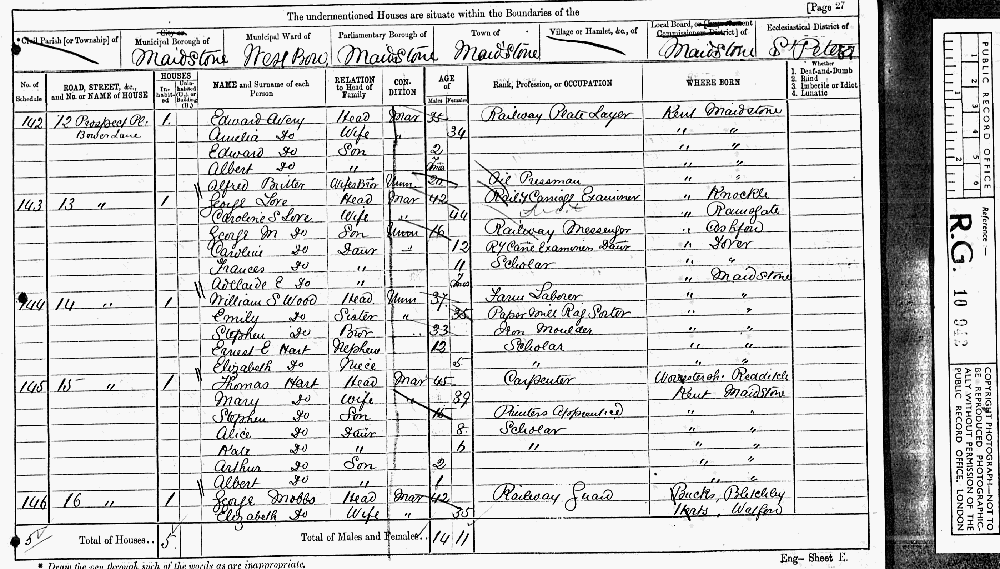 The undermentioned Houses are situate within the Boundaries of the
[Page 27
Civil Parish [or Township] of
City or Municipal Borough of
Maidstone
Municipal Ward of
West Boro
Parliamentary Borough of
Maidstone
Town of
Maidstone
Village or Hamlet, &c., of
Local Board, or [Improvement Commissioners District] of
Maidstone
Ecclesiastical District of
St Peters
No. of Schedule
ROAD, STREET, &c., and No. or NAME of HOUSE
HOUSES
Inhabited
Uninhabited (U.), or Building (B.)
NAME and Surname of each Person
RELATION to Head of Family
CONDITION
AGE of
Males
Females
Rank, Profession, or OCCUPATION
WHERE BORN
Whether
1. Deaf-and-Dumb
2. Blind
3. Imbecile or Idiot
4. Lunatic
142 12 Prospect Pl. 1 Edward Avery Head Mar 35 Railway Plate Layer Kent Maidstone
Bower Lane Amelia Do Wife 34 " "
Edward Do Son 2 " "
Albert Do " 7 mos " "
Alfred Butter Wifes Bror Unm 20 Oil Pressman " "
143 13 " 1 George Love Head Mar 42 Raily Carriage Examiner " Knockle
Caroline S Love Wife " 44 " Ramsgate
George M Do Son Unm 16 Railway Messenger " Ashford
Caroline Do Daur " 12 Ry Carre Examiners Daur " Dover
Frances Do " 11 Scholar " "
Adelaide E Do " 7 mos " Maidstone
144 14 " 1 William S Wood Head Unm 37 Farm Laborer " "
Emily Do Sister " 35 Paper Mill Rag Sorter " "
Stephen Do Bror 33 Iron Moulder " "
Ernest E Hart Nephew 12 Scholar " "
Elizabeth Do Niece 5 " " "
145 15 " 1 Thomas Hart Head Mar 45 Carpenter Worcestersh. Redditch
Mary Do Wife " 39 Kent Maidstone
Stephen Do Son 16 Printers Apprentice " "
Alice Do Daur 8 Scholar " "
Kate Do " 6 " " "
Arthur Do Son 2 " "
Albert Do " 1 " "
146 16 " 1 George Mobbs Head Mar 42 Railway Guard Bucks, Bletchley
Elizabeth Do Wife " 35 Herts, Watford
5 Total of Houses.. 5 Total of Males and Females.. 14 11
* Draw the pen through such of the words as are inappropriate.
Eng- Sheet E.
PUBLIC RECORD OFFICE
1 2 3 4 5 6
Reference :-
R.G. 10 943
COPYRIGHT PHOTOGRAPH—NOT TO BE REPRODUCED PHOTOGRAPHICALLY WITHOUT PERMISSION OF THE PUBLIC RECORD OFFICE, LONDON